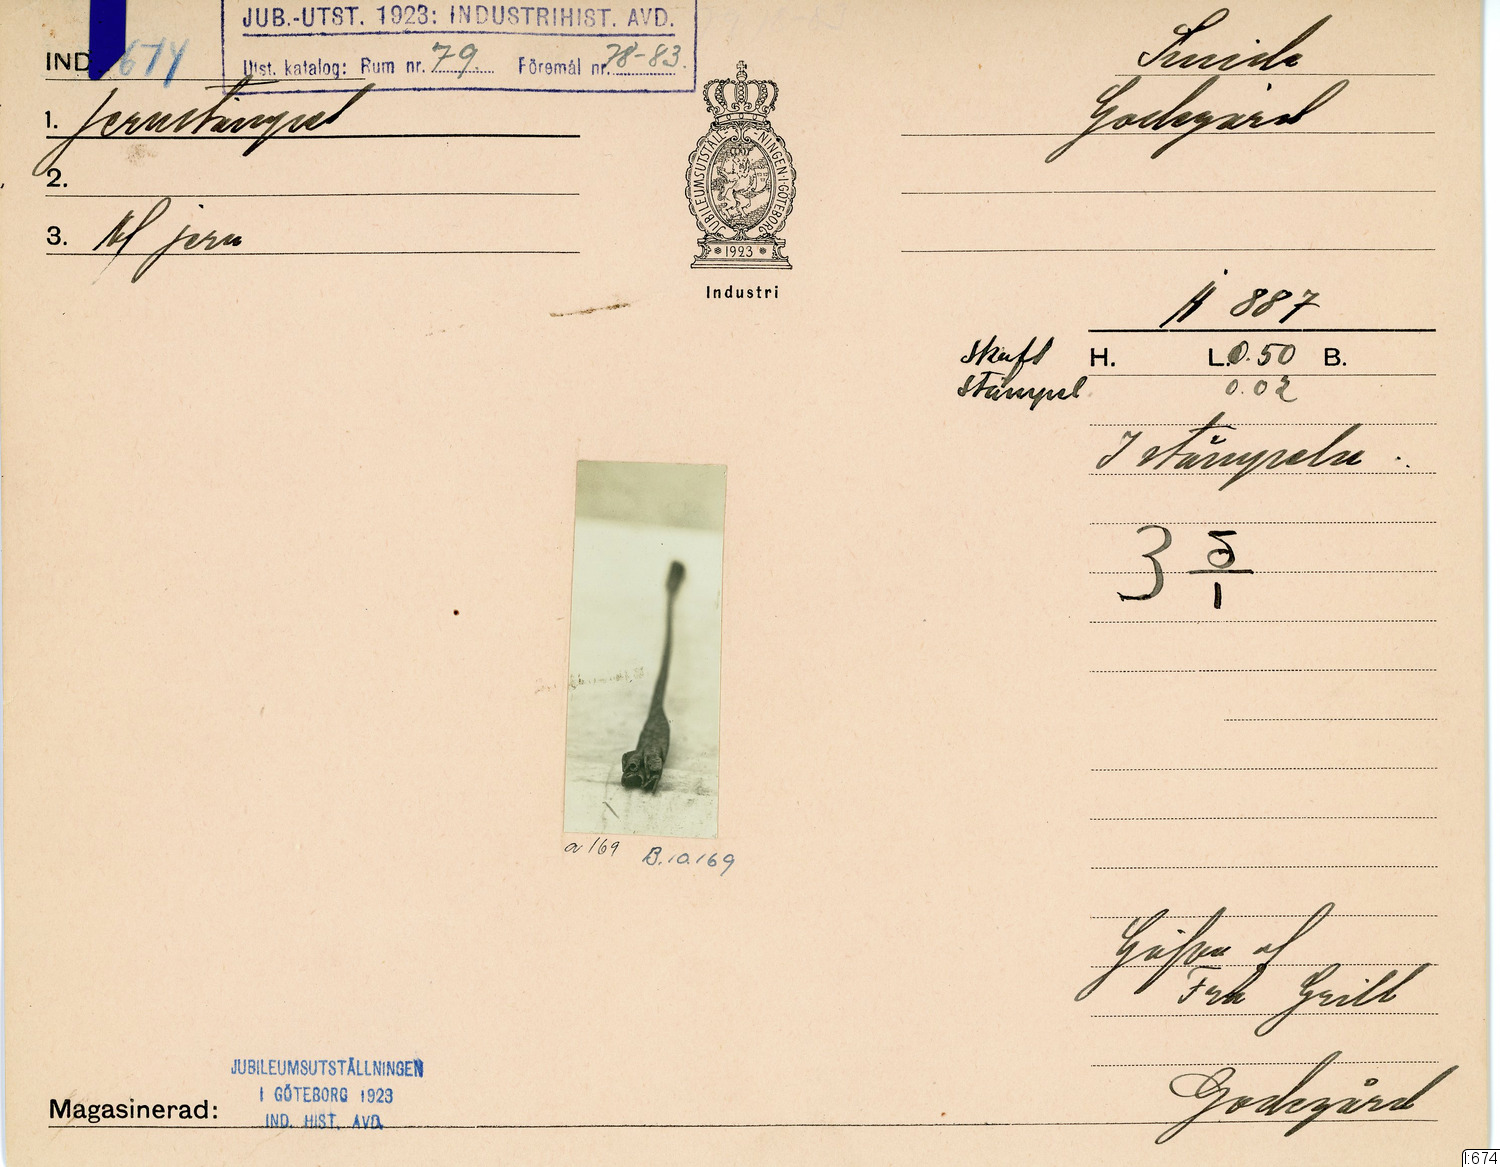 JUB.-UTST. 1923: INDUSTRIHIST. AVD.
Utst. katalog: Rum nr. 79. Föremål nr. 78-83.
IND 674
1. Jernstämpel
2.
3. Af jern
JUBILEUMSUTSTÄLLNINGEN·I·GÖTEBORG
* 1923 *
Industri
Smide
Godegård
H 887
Skaft H. L. 0.50 B.
Stämpel 0.02
I stämpeln :
3 5/1
a 169 B.10.169
Gåfva af
Fru Grill
Godegård
JUBILEUMSUTSTÄLLNINGEN
I GÖTEBORG 1923
IND. HIST. AVD.
Magasinerad:
I:674